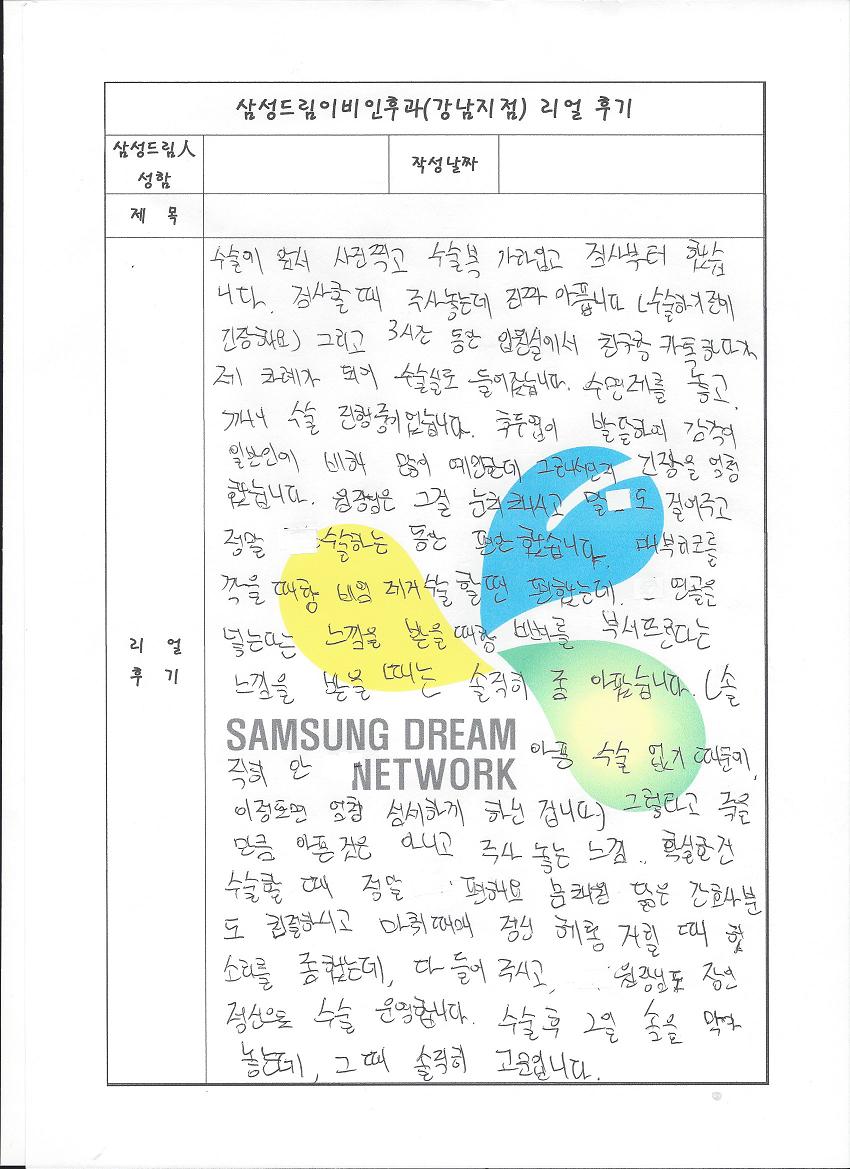 삼성드림이비인후과(강남지점) 리얼 후기
삼성드림人
성함
작성날짜
제 목
리 얼
후 기
수술이 앞서 사진찍고 수술복 갈아입고 검사부터 했습
니다. 검사할 때 주사놓는데 진짜 아픕니다 (수술하기 전에
긴장하요) 그리고 3시간 동안 입원실에서 친구랑 카톡하다가
제 차례가 되어 수술실로 들어갔습니다. 수면제를 놓고,
깨니 수술 진행중이었습니다. 후두엽이 발달하여 감각이
일반인에 비해 많이 예민한데 그래서인지 긴장을 엄청
했습니다. 원장님은 그걸 눈치채시고 말 도 걸어주고
정말 수술하는 동안 편안했습니다. 매부리코를
깍을 때랑 비염 제거수술 할땐 편했는데. 연골을
넣는다는 느낌을 받을때랑 비벼를 부셔뜨린다는
느낌을 받을 때는 솔직히 좀 아팠습니다. (솔
SAMSUNG DREAM
NETWORK
직히 안 아픈 수술 없기 때문에,
이정도면 엄청 섬세하게 하신 겁니다) 그렇다고 죽을
만큼 아픈 것은 아니고 주사 놓는 느낌.. 확실한건
수술할 때 정말 편해요 문채원 닮은 간호사분
도 친절하시고 마취때매 정신 헤롱 거릴 때 헛
소리를 좀 했는데, 다 들어 주시고, 원장님도 장인
정신으로 수술 운영합니다. 수술후 2일 솜을 막아
놓는데, 그 때 솔직히 고문입니다.